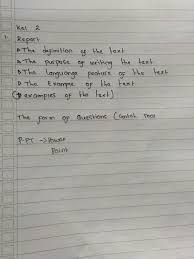 Kel 2
1. Report
▷ The definition of the text
▷ The purpose of writing the text
▷ The languange feature of the text
▷ The Example of the text
(examples of the text)
The form of Questions (contoh
P.PT → Power
Point